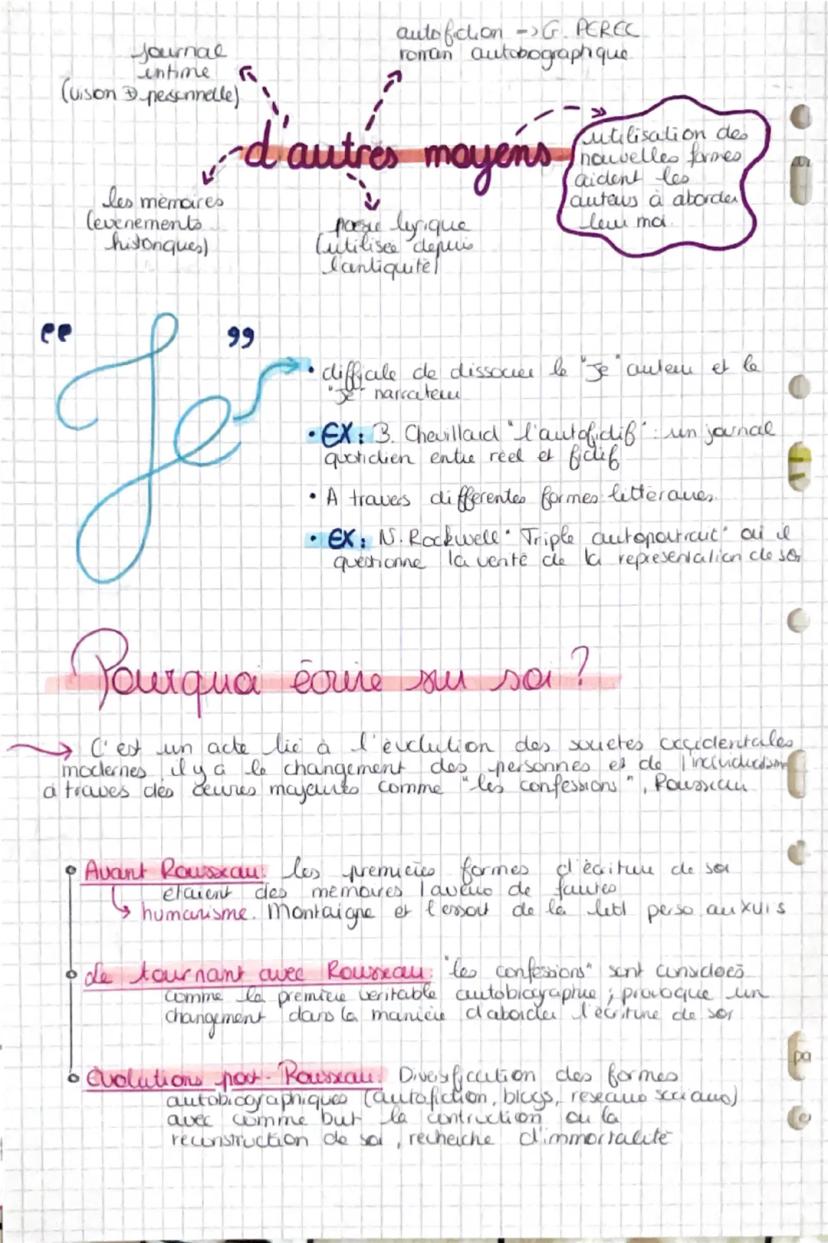 autofiction -> G. PEREC
roman autobographique
journal
intime
(vison 3 personnelle)
d'autres moyens
utilisation des
nouvelles formes
aident les
auteurs à aborder
leur moi
les mémoires
(evenements
historiques)
poesie lyrique
(utilisée depuis
l'antiquité)
"Je"
• difficile de dissocier le "Je" auteur et le
"Je" narrateur
• EX: Chevillard "l'autofictif": un journal
quotidien entre réel et fictif
• A travers différentes formes littéraires
• EX: N. Rockwell "Triple autoportrait" où il
questionne la vérité de la representation de soi
Pourquoi écrire sur soi?
C'est un acte lié à l'évolution des societes occidentales
modernes, il y a le changement des personnes et de
à travers des œuvres majeures comme "les confessions", Rousseau
Avant Rousseau: les premières formes d'écriture de soi
étaient des mémoires / aveux de fautes
humanisme. Montaigne et l'essort de la perso au XVIs
Le tournant avec Rousseau: "les confessions" sont
comme la première veritable autobiographie; provoque un
changement dans la manière d'aborder l'écriture de soi
Evolutions post-Rousseau: Diversification des formes
autobiographiques (autofiction, blogs, reseaux sociaux)
avec comme but la contruction ou la
reconstruction de soi, recherche d'immortalité